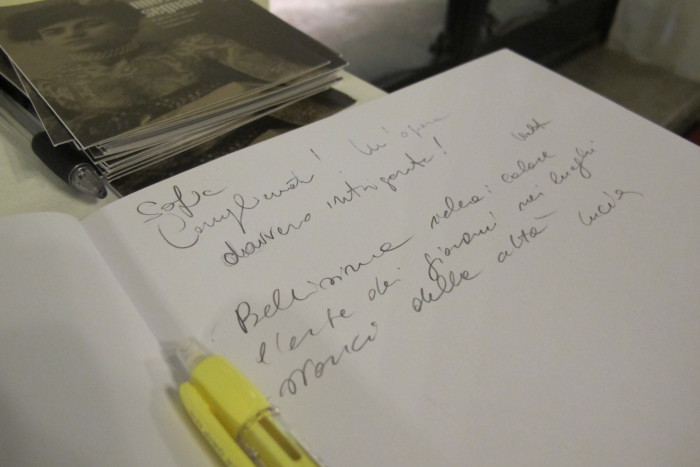 Complimenti! Un'opera
davvero intrigante!
Bellissima idea: valore
l'arte dei giovani nei luoghi
storici della città Lucia